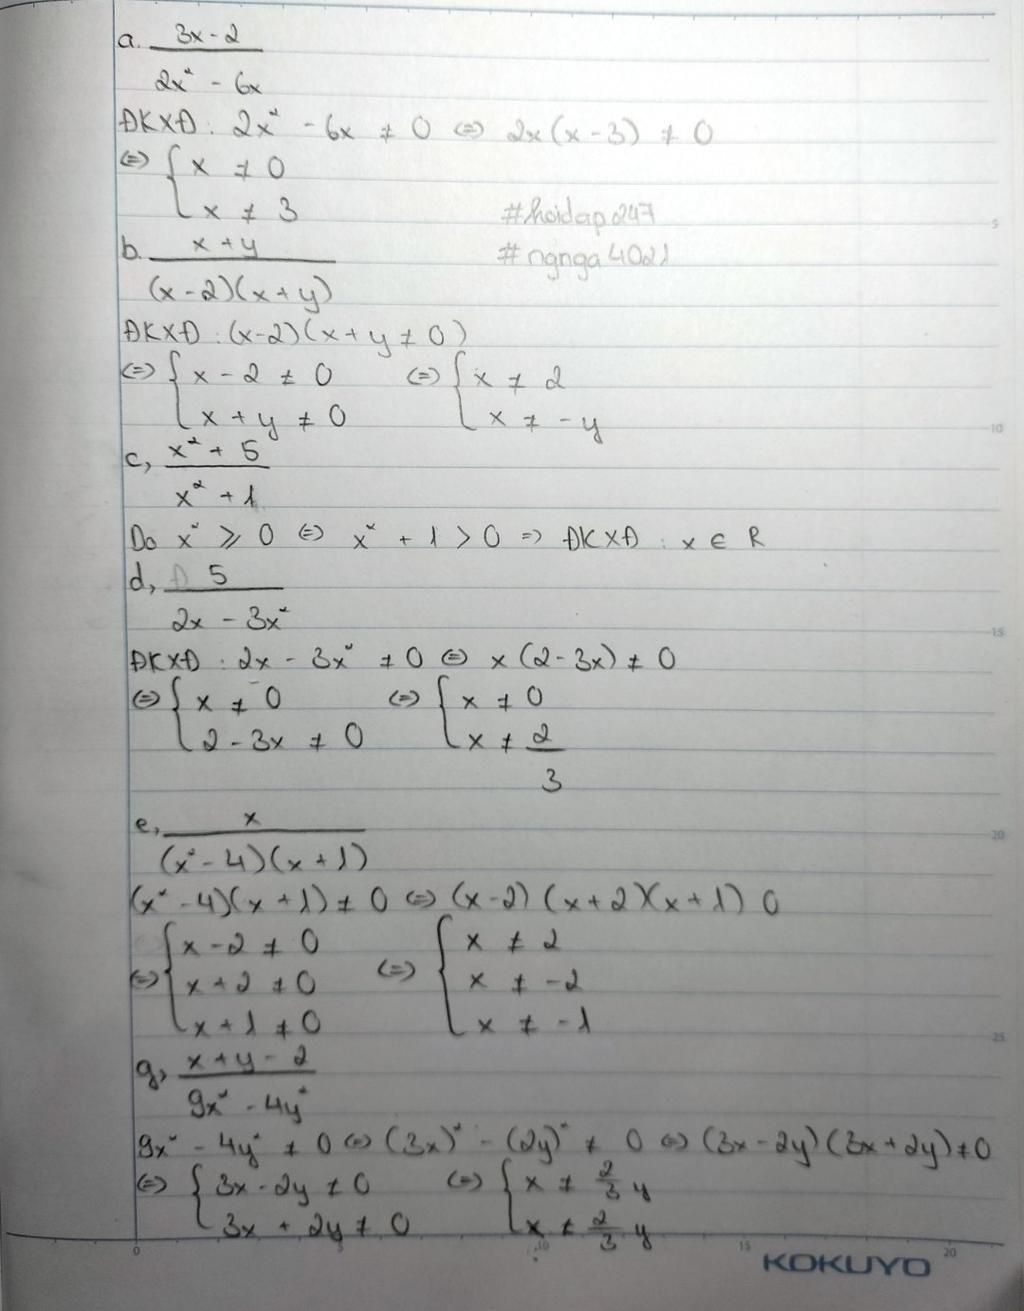 a. (3x - 2)/(2x² - 6x)
ĐKXĐ : 2x² - 6x ≠ 0 <=> 2x(x - 3) ≠ 0
<=> { x ≠ 0
x ≠ 3
#hoidap247
b. (x + y)/((x - 2)(x + y))
#ngnga4021
ĐKXĐ : (x - 2)(x + y ≠ 0)
<=> { x - 2 ≠ 0 <=> { x ≠ 2
x + y ≠ 0 x ≠ - y
c, (x² + 5)/(x² + 1)
Do x² ⩾ 0 <=> x² + 1 > 0 => ĐKXĐ : x ∈ R
d, 5/(2x - 3x²)
ĐKXĐ : 2x - 3x² ≠ 0 <=> x(2 - 3x) ≠ 0
<=> { x ≠ 0 <=> { x ≠ 0
2 - 3x ≠ 0 x ≠ 2/3
e, x/((x² - 4)(x + 1))
(x² - 4)(x + 1) ≠ 0 <=> (x - 2)(x + 2)(x + 1) 0
<=> { x - 2 ≠ 0 <=> { x ≠ 2
x + 2 ≠ 0 x ≠ -2
x + 1 ≠ 0 x ≠ -1
g, (x + y - 2)/(9x² - 4y²)
9x² - 4y² ≠ 0 <=> (3x)² - (2y)² ≠ 0 <=> (3x - 2y)(3x + 2y) ≠ 0
<=> { 3x - 2y ≠ 0 <=> { x ≠ 2/3 y
3x + 2y ≠ 0 x ≠ 2/3 y
5
10
15
20
25
0 5 10 15 20
KOKUYO